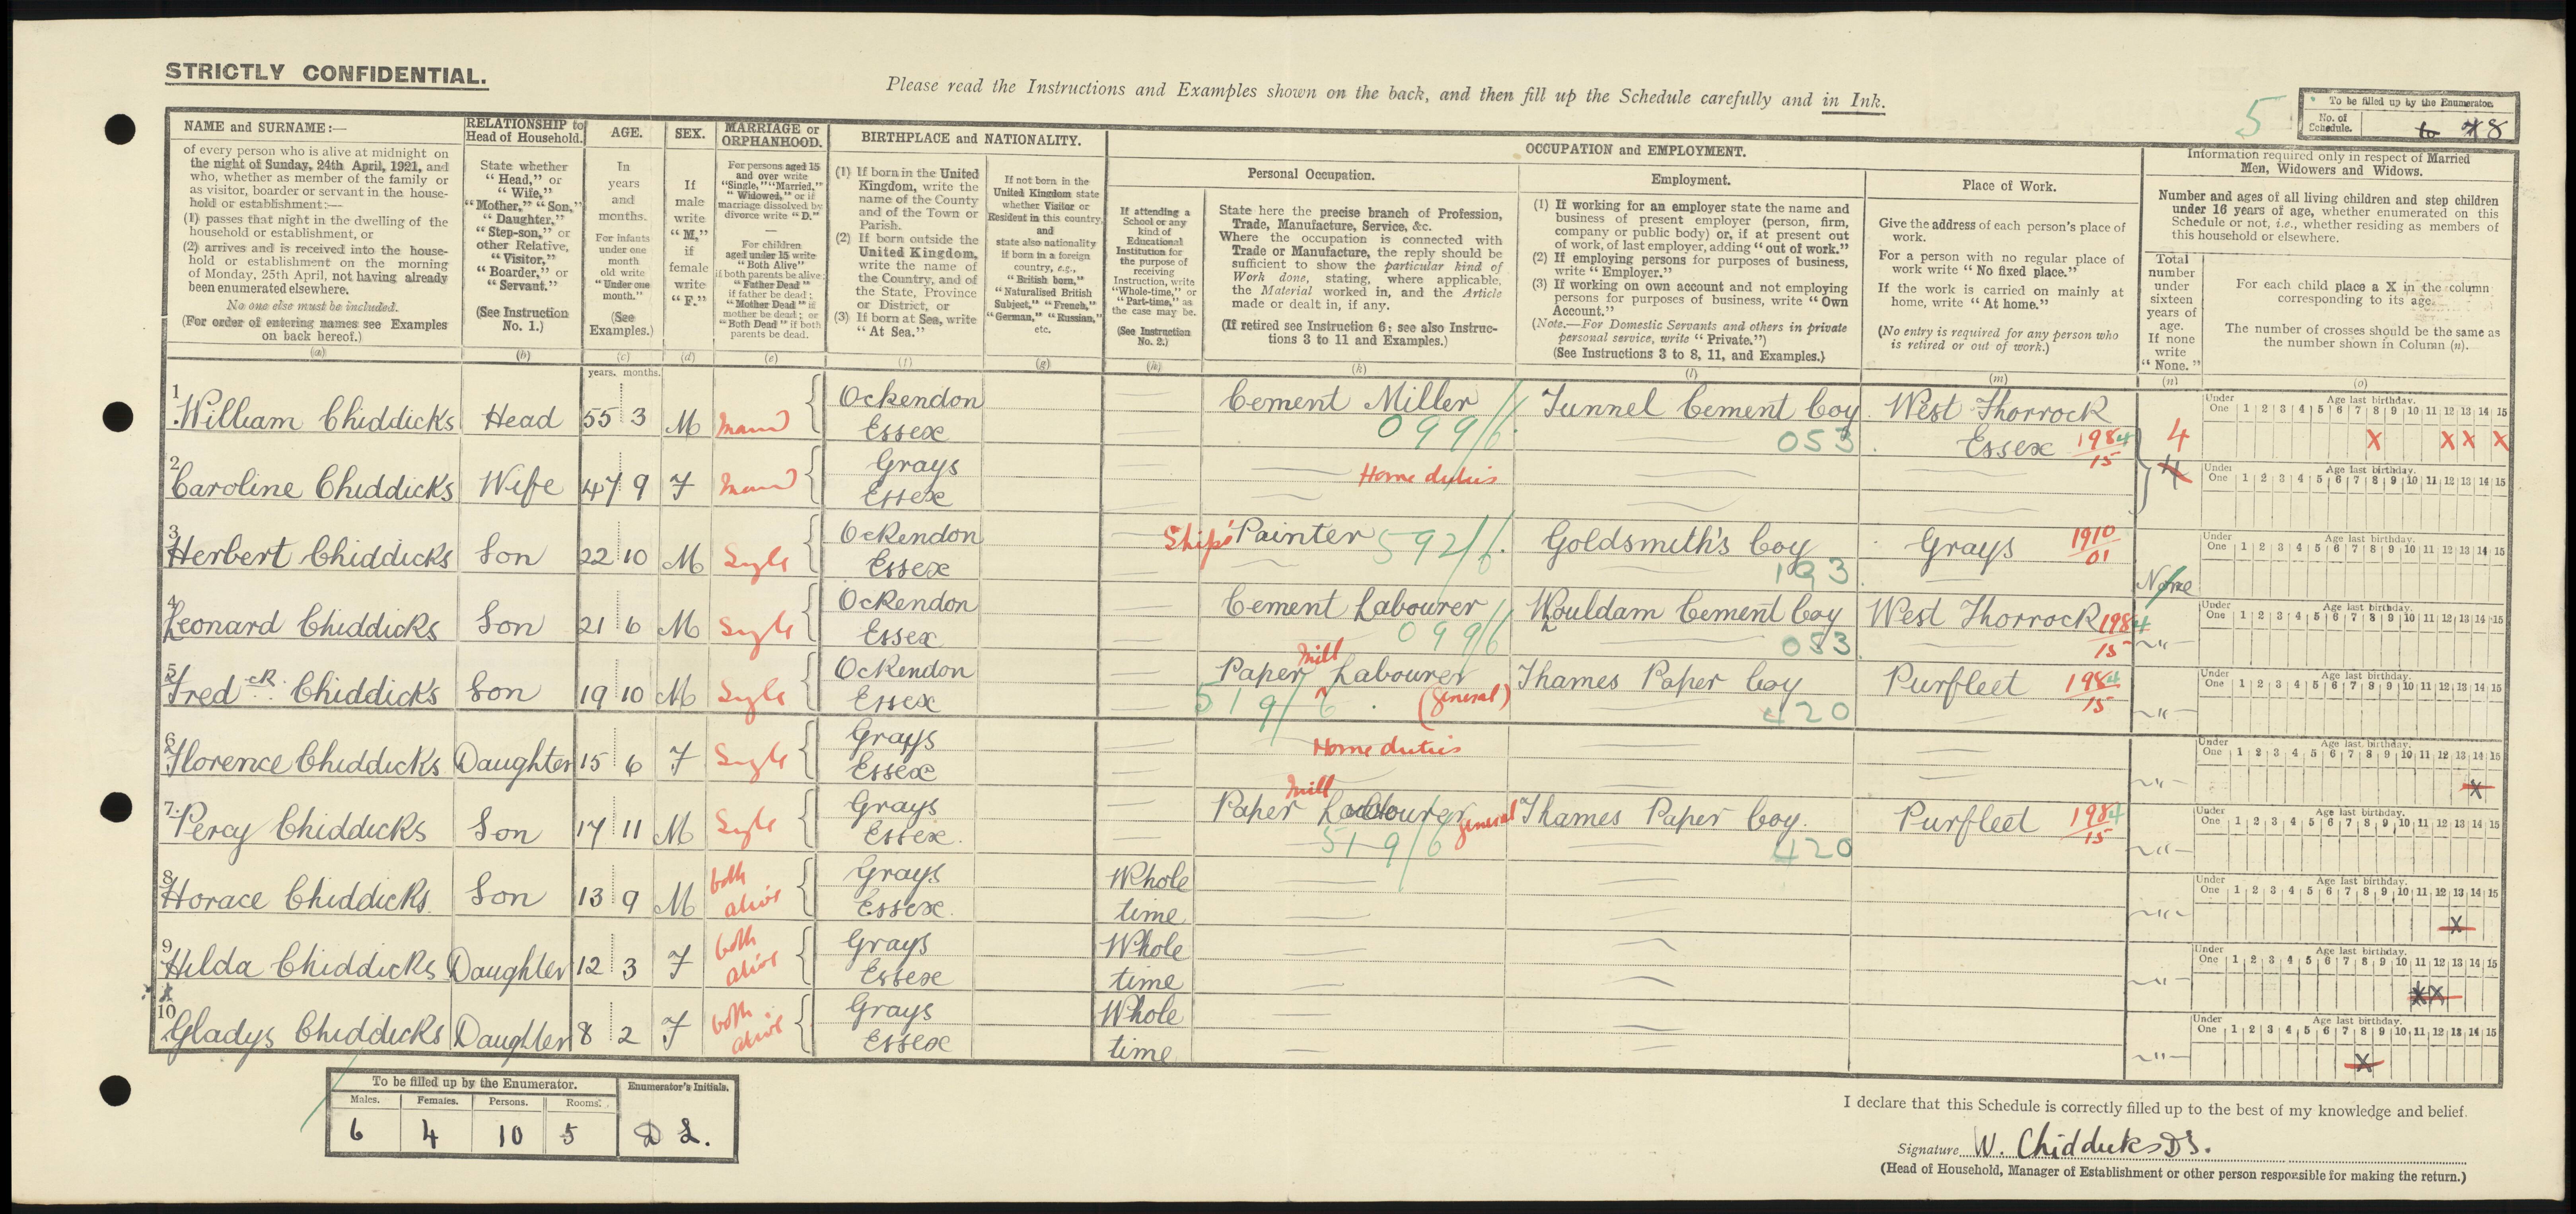 STRICTLY CONFIDENTIAL.
Please read the Instructions and Examples shown on the back, and then fill up the Schedule carefully and in Ink.
5
To be filled up by the Enumerator.
No. of Schedule. 78
NAME and SURNAME:—
of every person who is alive at midnight on
the night of Sunday, 24th April, 1921, and
who, whether as member of the family or
as visitor, boarder or servant in the house-
hold or establishment:—
(1) passes that night in the dwelling of the
household or establishment, or
(2) arrives and is received into the house-
hold or establishment on the morning
of Monday, 25th April, not having already
been enumerated elsewhere.
No one else must be included.
(For order of entering names see Examples
on back hereof.)
(a)
RELATIONSHIP to
Head of Household.
State whether
"Head," or
"Wife,"
"Mother," "Son,"
"Daughter,"
"Step-son," or
other Relative,
"Visitor,"
"Boarder," or
"Servant."
(See Instruction
No. 1.)
(b)
AGE.
In
years
and
months.
For infants
under one
month
old write
"Under one
month."
(See
Examples.)
(c)
years. months.
SEX.
If
male
write
"M,"
if
female
write
"F."
(d)
MARRIAGE or
ORPHANHOOD.
For persons aged 15
and over write
"Single," "Married,"
"Widowed," or if
marriage dissolved by
divorce write "D."
For children
aged under 15 write
"Both Alive"
if both parents be alive;
"Father Dead"
if father be dead;
"Mother Dead" if
mother be dead; or
"Both Dead" if both
parents be dead.
(e)
BIRTHPLACE and NATIONALITY.
(1) If born in the United
Kingdom, write the
name of the County
and of the Town or
Parish.
(2) If born outside the
United Kingdom,
write the name of
the Country, and of
the State, Province
or District, or
(3) If born at Sea, write
"At Sea."
(f)
If not born in the
United Kingdom state
whether Visitor or
Resident in this country,
and
state also nationality
if born in a foreign
country, e.g.,
"British born,"
"Naturalised British
Subject," "French,"
"German," "Russian,"
etc.
(g)
OCCUPATION and EMPLOYMENT.
If attending a
School or any
kind of
Educational
Institution for
the purpose of
receiving
Instruction, write
"Whole-time," or
"Part-time," as
the case may be.
(See Instruction
No. 2.)
(h)
Personal Occupation.
State here the precise branch of Profession,
Trade, Manufacture, Service, &c.
Where the occupation is connected with
Trade or Manufacture, the reply should be
sufficient to show the particular kind of
Work done, stating, where applicable,
the Material worked in, and the Article
made or dealt in, if any.
(If retired see Instruction 6; see also Instruc-
tions 3 to 11 and Examples.)
(k)
Employment.
(1) If working for an employer state the name and
business of present employer (person, firm,
company or public body) or, if at present out
of work, of last employer, adding "out of work."
(2) If employing persons for purposes of business,
write "Employer."
(3) If working on own account and not employing
persons for purposes of business, write "Own
Account."
(Note.—For Domestic Servants and others in private
personal service, write "Private.")
(See Instructions 3 to 8, 11, and Examples.)
(l)
Place of Work.
Give the address of each person's place of
work.
For a person with no regular place of
work write "No fixed place."
If the work is carried on mainly at
home, write "At home."
(No entry is required for any person who
is retired or out of work.)
(m)
Information required only in respect of Married
Men, Widowers and Widows.
Number and ages of all living children and step children
under 16 years of age, whether enumerated on this
Schedule or not, i.e., whether residing as members of
this household or elsewhere.
Total
number
under
sixteen
years of
age.
If none
write
"None."
(n)
For each child place a X in the column
corresponding to its age.
The number of crosses should be the same as
the number shown in Column (n).
(o)
Under One Age last birthday. 1 2 3 4 5 6 7 8 9 10 11 12 13 14 15
1 William Chiddicks Head 55 3 M Marrd Ockendon Essex Cement Miller 099/6 Tunnel Cement Coy 053 West Thorrock Essex 1984/15 4 X X X X
2 Caroline Chiddicks Wife 47 9 F Marrd Grays Essex Home duties 4
3 Herbert Chiddicks Son 22 10 M Single Ockendon Essex Ship's Painter 592/6 Goldsmith's Coy 193 Grays 1910/01 None
4 Leonard Chiddicks Son 21 6 M Single Ockendon Essex Cement Labourer 099/6 Wouldam Cement Coy 053 West Thorrock 1984/15 ~"~
5 Fredck Chiddicks Son 19 10 M Single Ockendon Essex Paper Mill Labourer (general) 519/6 Thames Paper Coy 420 Purfleet 1984/15 ~"~
6 Florence Chiddicks Daughter 15 6 F Single Grays Essex Home duties ~"~ X
7 Percy Chiddicks Son 17 11 M Single Grays Essex. Paper Mill Labourer general 519/6 Thames Paper Coy. 420 Purfleet 1984/15 ~"~
8 Horace Chiddicks Son 13 9 M both alive Grays Essex. Whole time ~"~ X
9 Hilda Chiddicks Daughter 12 3 F both alive Grays Essex Whole time ~"~ X X
10 Gladys Chiddicks Daughter 8 2 F both alive Grays Essex Whole time ~"~ X
To be filled up by the Enumerator.
Males. Females. Persons. Rooms.
6 4 10 5
Enumerator's Initials.
D L.
I declare that this Schedule is correctly filled up to the best of my knowledge and belief.
Signature W. Chiddicks
(Head of Household, Manager of Establishment or other person responsible for making the return.)